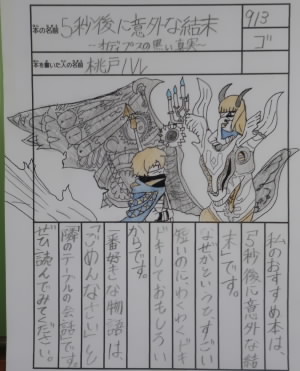 本の名前
5秒後に意外な結末
～オイディプスの黒い真実～
913
ゴ
本を書いた人の名前
桃戸ハル
私のおすすめ本は、
「5秒後に意外な結
末」です。
なぜかというと、すごい
短いのに、わくわく、ドキ
ドキしておもしろい
からです。
一番好きな物語は、
「ごめんなさい」と
「隣のテーブルの会話」です。
ぜひ読んでみてください。